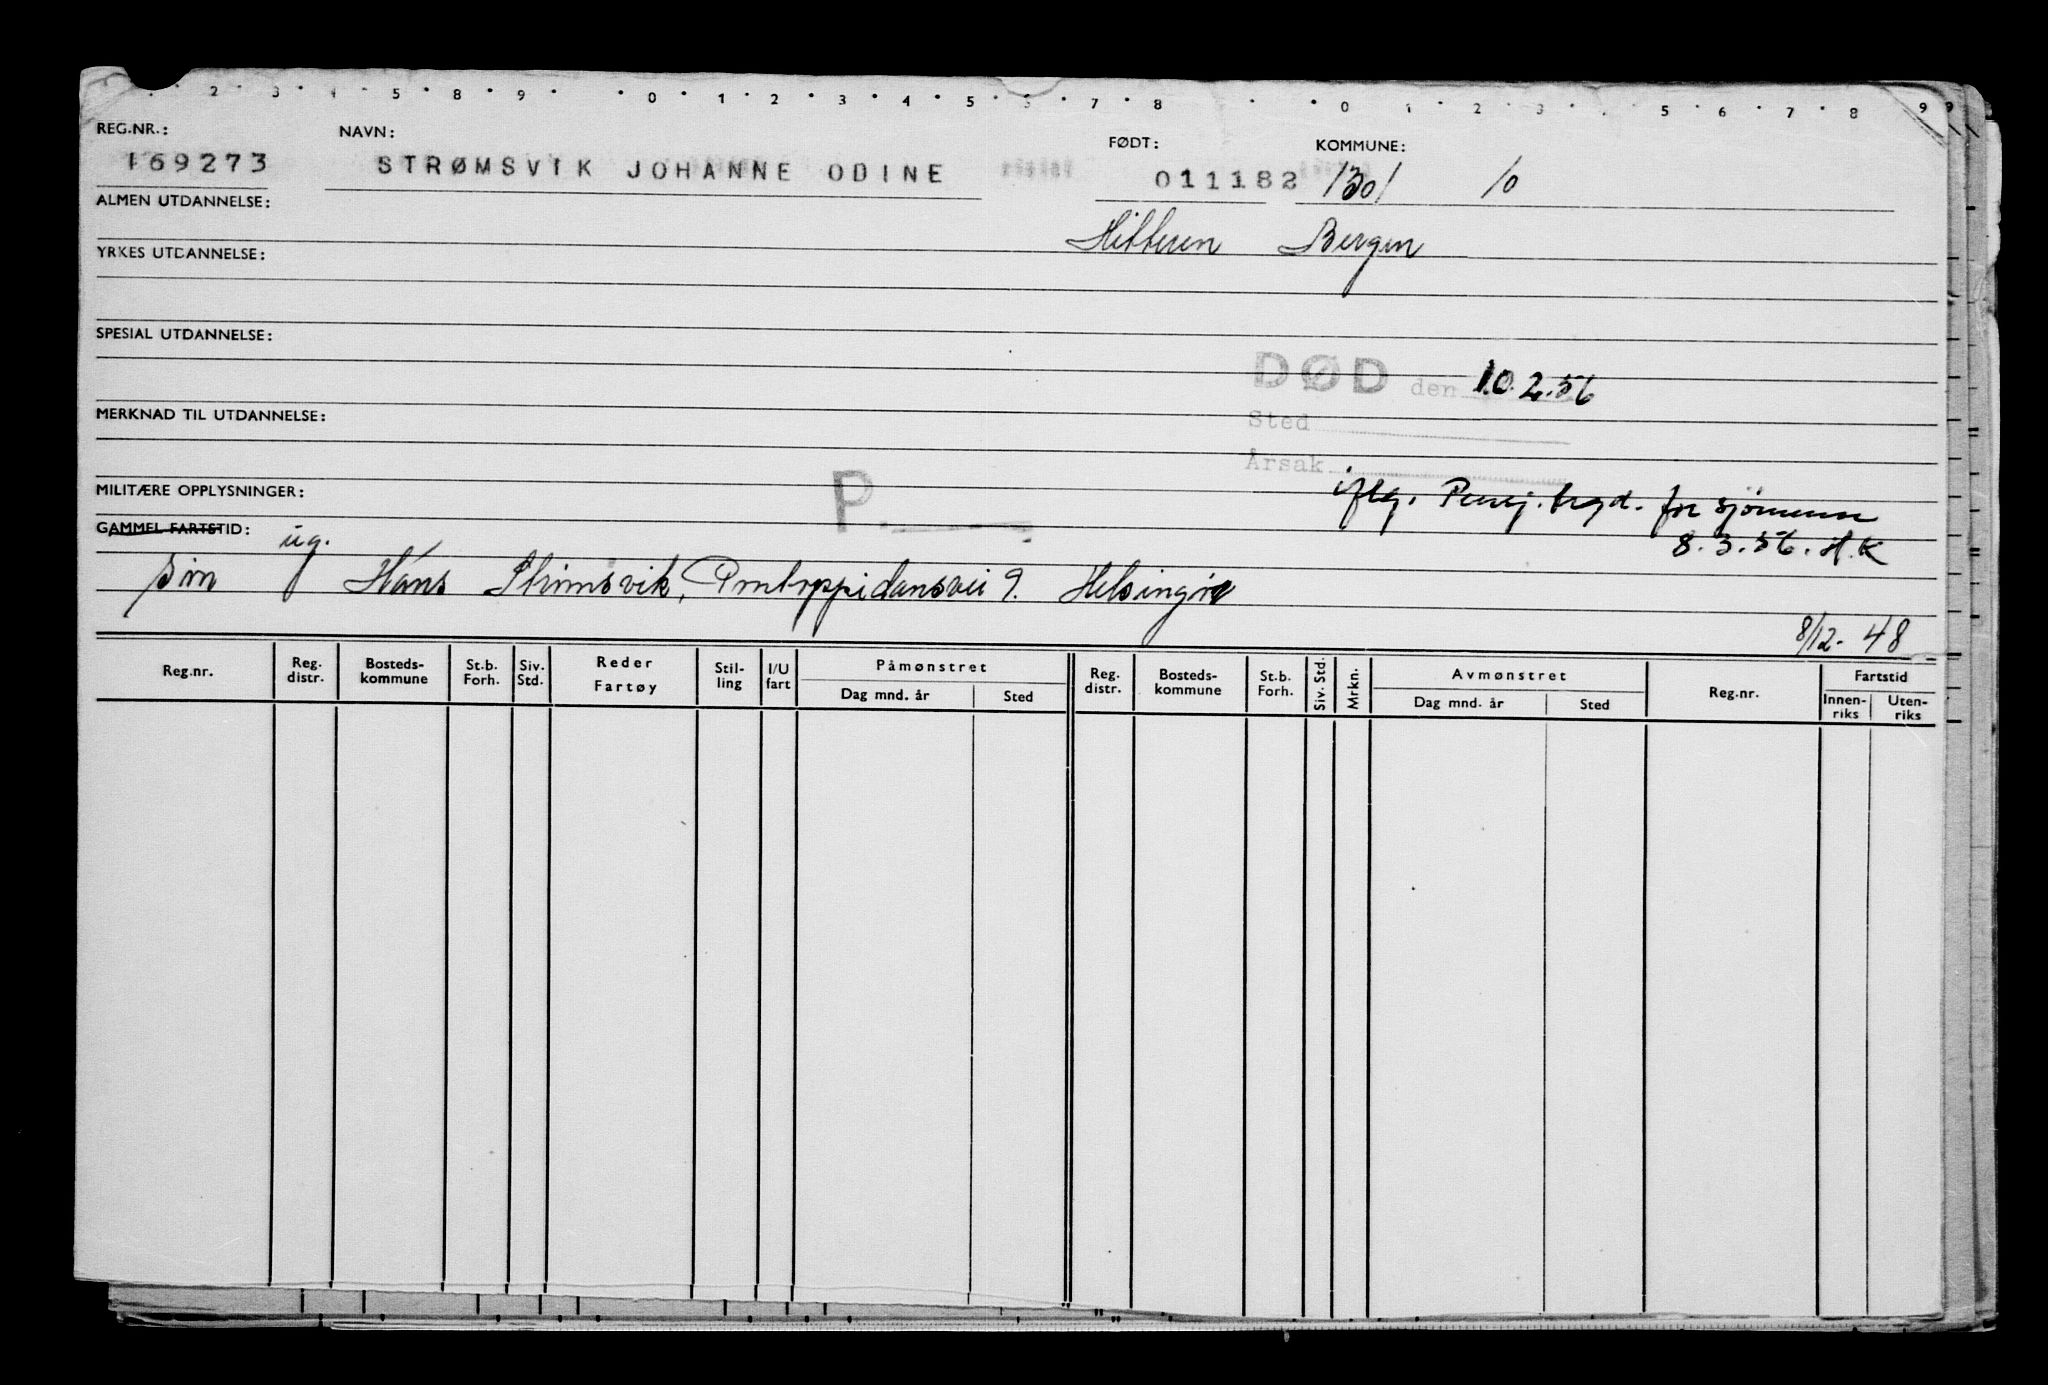 2 3 4 5 8 9 0 1 2 3 4 5 6 7 8 0 1 2 3 5 6 7 8 9
REG.NR.: NAVN: FØDT: KOMMUNE:
169273 STRØMSVIK JOHANNE ODINE 011182 1301 10
ALMEN UTDANNELSE:
Hitteren Bergen
YRKES UTDANNELSE:
SPESIAL UTDANNELSE:
DØD den 10.2.56
MERKNAD TIL UTDANNELSE:
Sted
Årsak
P.
MILITÆRE OPPLYSNINGER:
iflg. Pensj. trgd. for sjömenn
GAMMEL FARTSTID: ug.
8.3.56. H.K
Sön Hans Strömsvik, Pontoppidansvei 9. Helsingör
8/12-48
Reg.nr. Reg. distr. Bosteds-kommune St.b. Forh. Siv. Std. Reder Fartøy Stil-ling I/U fart Påmønstret Reg. distr. Bosteds-kommune St.b. Forh. Siv. Std. Mrkn. Avmønstret Reg.nr. Fartstid
Dag mnd. år Sted Dag mnd. år Sted Innen-riks Uten-riks